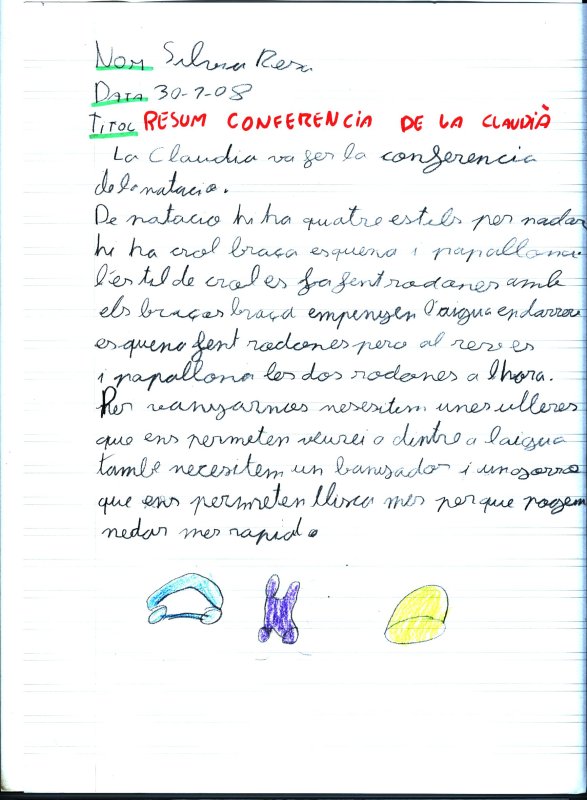 Nom Silvia Rex
Data 30-1-08
Titol RESUM CONFERENCIA DE LA CLAUDIÀ
La Claudia va fer la conferencia
de la natacio.
De natacio hi ha quatre estils per nadar
hi ha crol braça esquena i papallona
l'estil de crol es fa fent rodones amb
els braços braça empenyen l'aigua endarrere
esquena fent rodones pero al reves
i papallona les dos rodones a lhora.
Per nesesitem unes ulleres
que ens permeten veure i a dintre a laigua
tambe necesitem un banyador i un gorro
que ens permeten llisca mes per que pogem
nedar mes rapid.